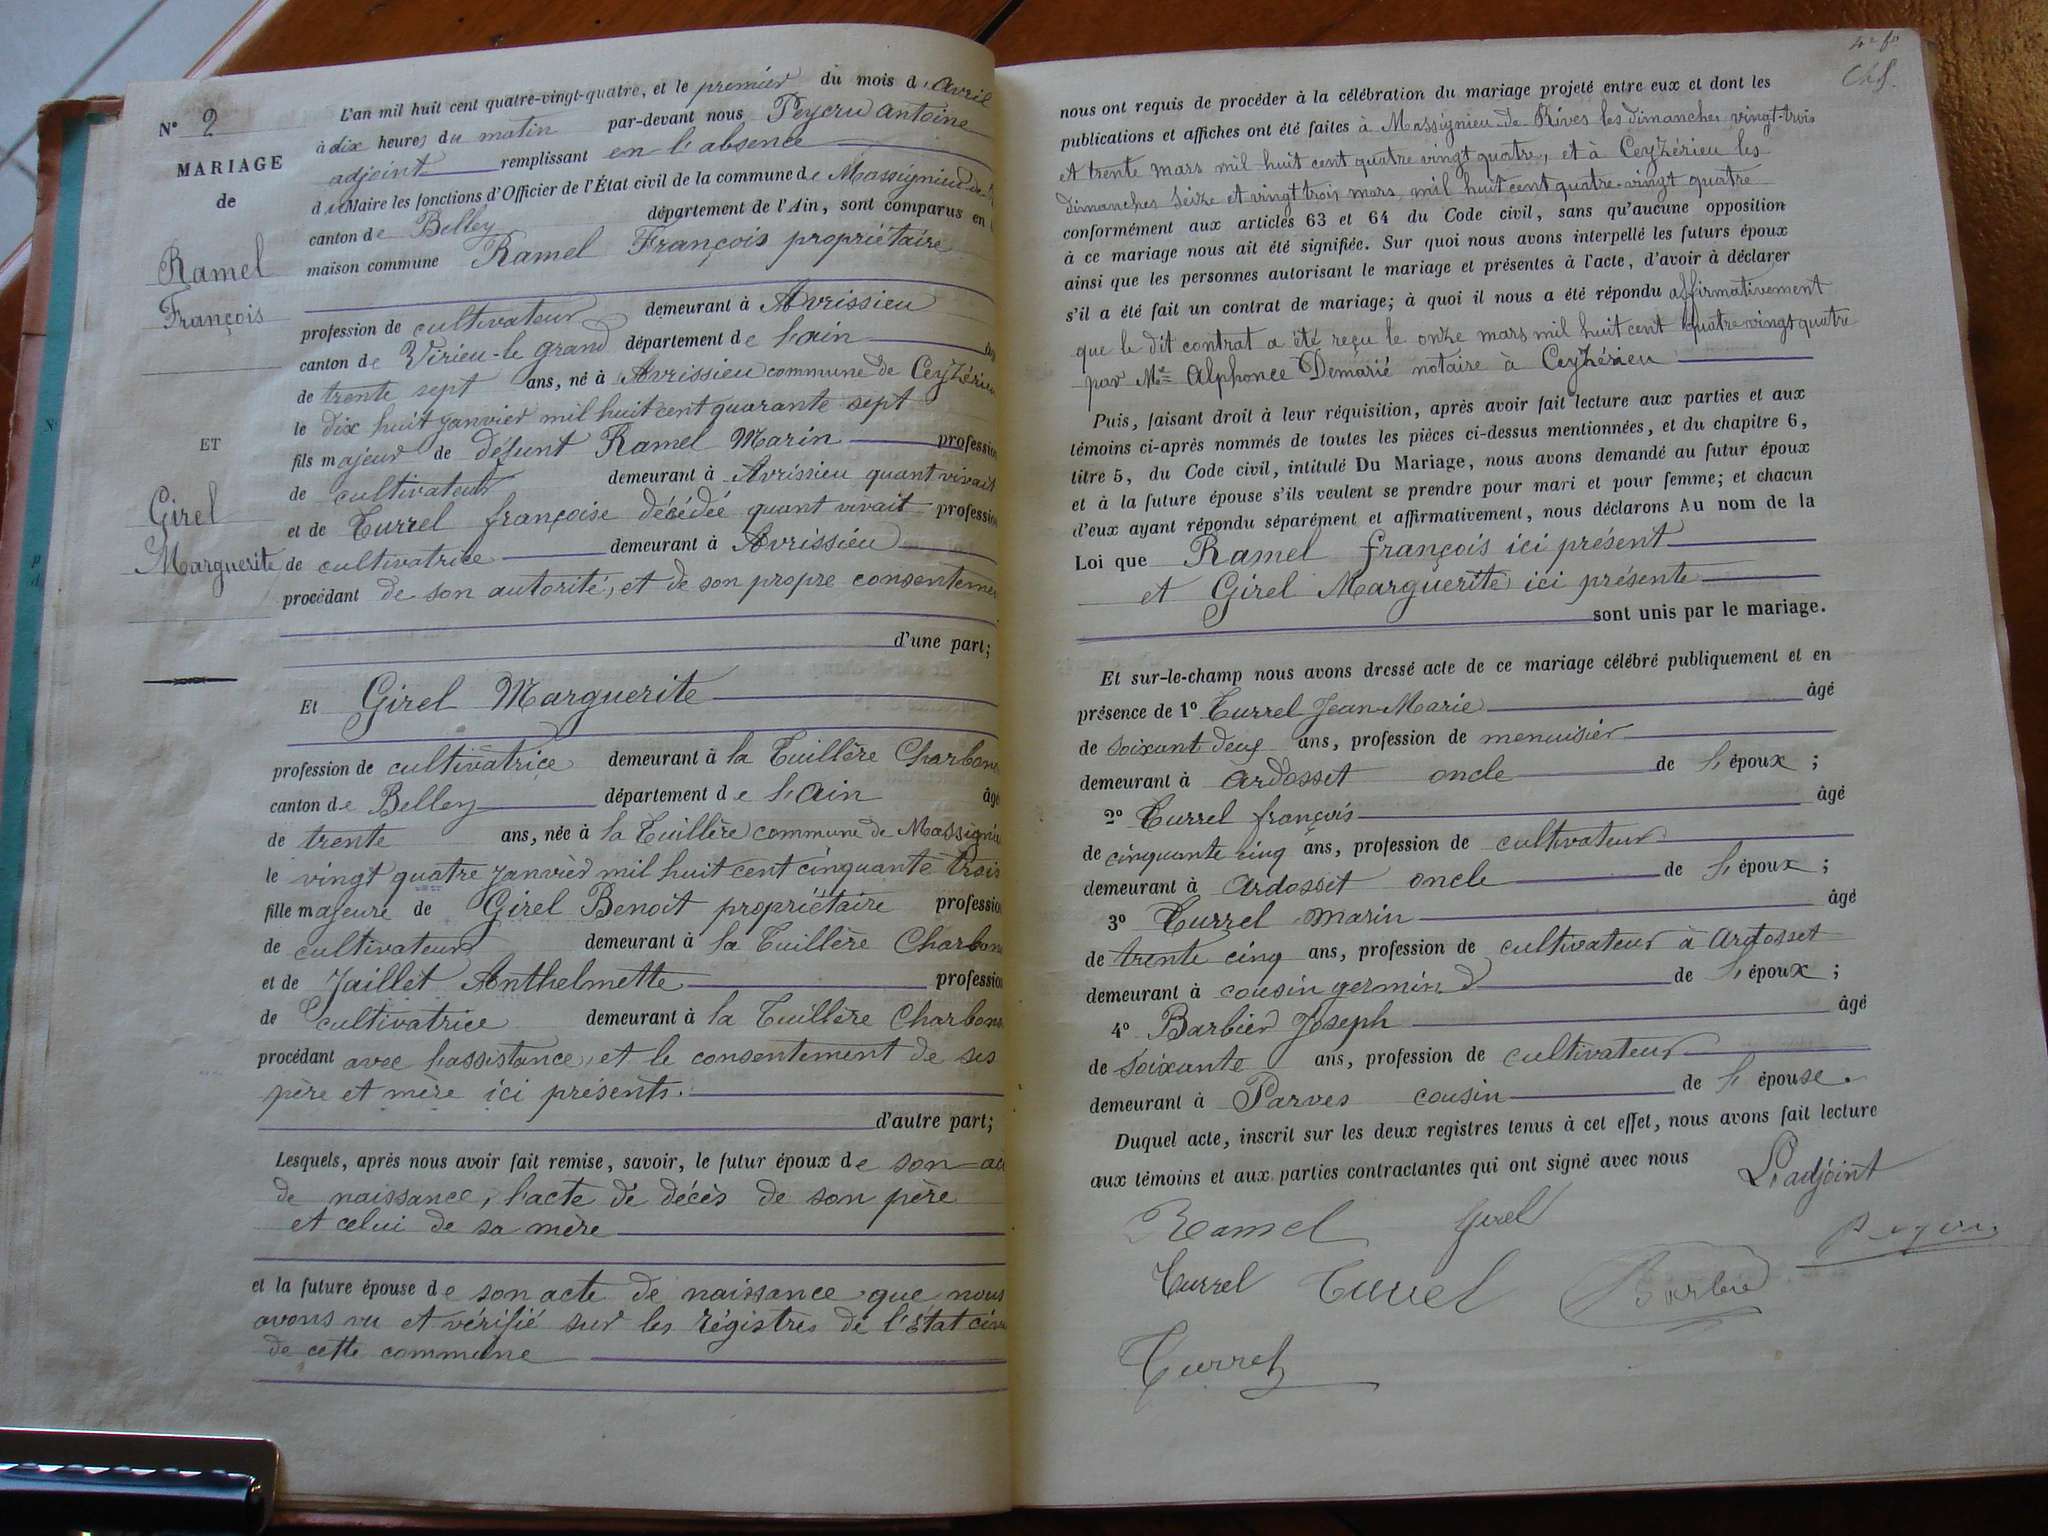 N° 2
MARIAGE
de
Ramel
François
ET
Girel
Marguerite
L'an mil huit cent quatre-vingt-quatre, et le premier du mois d'avril
à dix heures du matin par-devant nous Peycru Antoine
adjoint remplissant en l'absence
du Maire les fonctions d'Officier de l'État civil de la commune de Massignieu-de-
canton de Belley département de l'Ain, sont comparus en
maison commune Ramel François propriétaire
profession de cultivateur demeurant à Avrissieu
canton de Virieu-le grand département de l'ain
de trente sept ans, né à Avrissieu commune de Ceyzérieu
le dix huit janvier mil huit cent quarante sept
fils majeur de défunt Ramel Marin profession
de cultivateur demeurant à Avrissieu quant vivait
et de Turrel françoise décédée quant vivait profession
de cultivatrice demeurant à Avrissieu
procédant de son autorité, et de son propre consenteme
d'une part;
Et Girel Marguerite
profession de cultivatrice demeurant à la Tuillère Charbono
canton de Belley département de l'Ain âgé
de trente ans, née à la Tuillère commune de Massignieu
le vingt quatre janvier mil huit cent cinquante trois
fille majeure de Girel Benoit propriétaire profession
de cultivateur demeurant à la Tuillère Charbono
et de Jaillet Anthelmette profession
de cultivatrice demeurant à la Tuillère Charbono
procédant avec l'assistance, et le consentement de ses
père et mère ici présents.
d'autre part;
Lesquels, après nous avoir fait remise, savoir, le futur époux de son ac
de naissance, l'acte de décès de son père
et celui de sa mère
et la future épouse de son acte de naissance que nous
avons vu et vérifié sur les régistres de l'état civi
de cette commune
nous ont requis de procéder à la célébration du mariage projeté entre eux et dont les
publications et affiches ont été faites à Massignieu-de-Rives les dimanches vingt-trois
et trente mars mil huit cent quatre vingt quatre, et à Ceyzérieu les
dimanches seize et vingt trois mars mil huit cent quatre-vingt quatre
conformément aux articles 63 et 64 du Code civil, sans qu'aucune opposition
à ce mariage nous ait été signifiée. Sur quoi nous avons interpellé les futurs époux
ainsi que les personnes autorisant le mariage et présentes à l'acte, d'avoir à déclarer
s'il a été fait un contrat de mariage; à quoi il nous a été répondu affirmativement
que le dit contrat a été reçu le onze mars mil huit cent quatre vingt quatre
par Me Alphonce Demarié notaire à Ceyzérieu
Puis, faisant droit à leur réquisition, après avoir fait lecture aux parties et aux
témoins ci-après nommés de toutes les pièces ci-dessus mentionnées, et du chapitre 6,
titre 5, du Code civil, intitulé Du Mariage, nous avons demandé au futur époux
et à la future épouse s'ils veulent se prendre pour mari et pour femme; et chacun
d'eux ayant répondu séparément et affirmativement, nous déclarons Au nom de la
Loi que Ramel françois ici présent
et Girel Marguerite ici présente
sont unis par le mariage.
Et sur-le-champ nous avons dressé acte de ce mariage célébré publiquement et en
présence de 1° Turrel Jean-Marie âgé
de soixant deux ans, profession de menuisier
demeurant à ardosset oncle de l'époux ;
2° Turrel françois âgé
de cinquante cinq ans, profession de cultivateur
demeurant à ardosset oncle de l'époux ;
3° Turrel Marin âgé
de trente cinq ans, profession de cultivateur à ardosset
demeurant à cousin germin de l'époux ;
4° Barbier Joseph âgé
de soixante ans, profession de cultivateur
demeurant à Parves cousin de l'épouse.
Duquel acte, inscrit sur les deux registres tenus à cet effet, nous avons fait lecture
aux témoins et aux parties contractantes qui ont signé avec nous L'adjoint
Ramel Girel
Turrel Turrel Barbier
Turrel